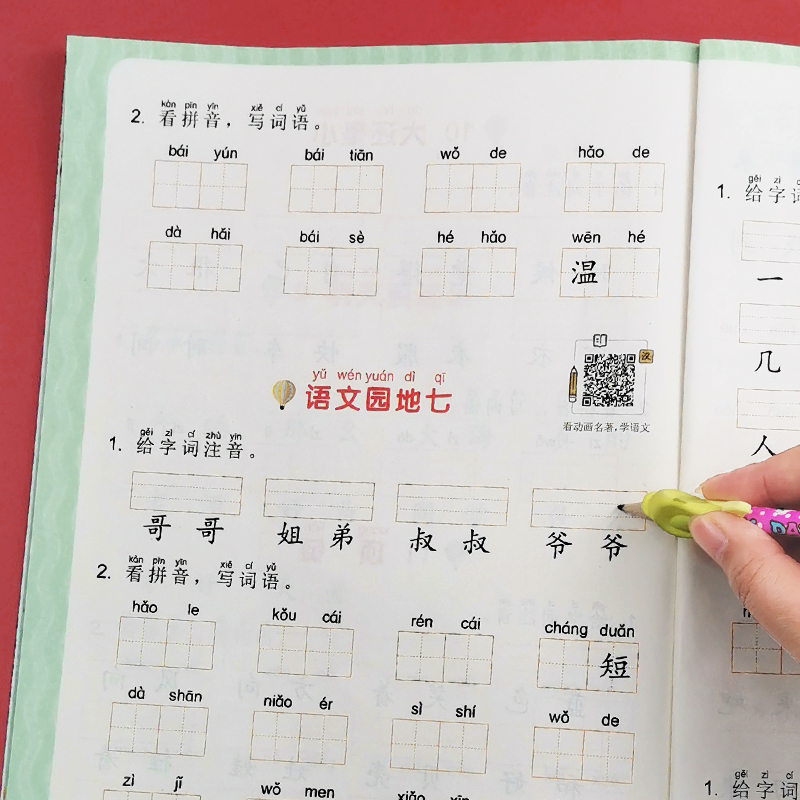 kàn pīn yīn xiě cí yǔ
2. 看拼音，写词语。
bái yún bái tiān wǒ de hǎo de
dà hǎi bái sè hé hǎo wēn hé
温
汉
yǔ wén yuán dì qī
语文园地七
看动画名著，学语文
gěi zì cí zhù yīn
1. 给字词注音。
哥哥 姐弟 叔叔 爷爷
kàn pīn yīn xiě cí yǔ
2. 看拼音，写词语。
hǎo le kǒu cái rén cái cháng duǎn
短
dà shān niǎo ér sì shí wǒ de
zì jǐ wǒ men xiǎo xīn
gěi zì cí
1. 给字词
一
几
人
gěi zì cí
1. 给字词